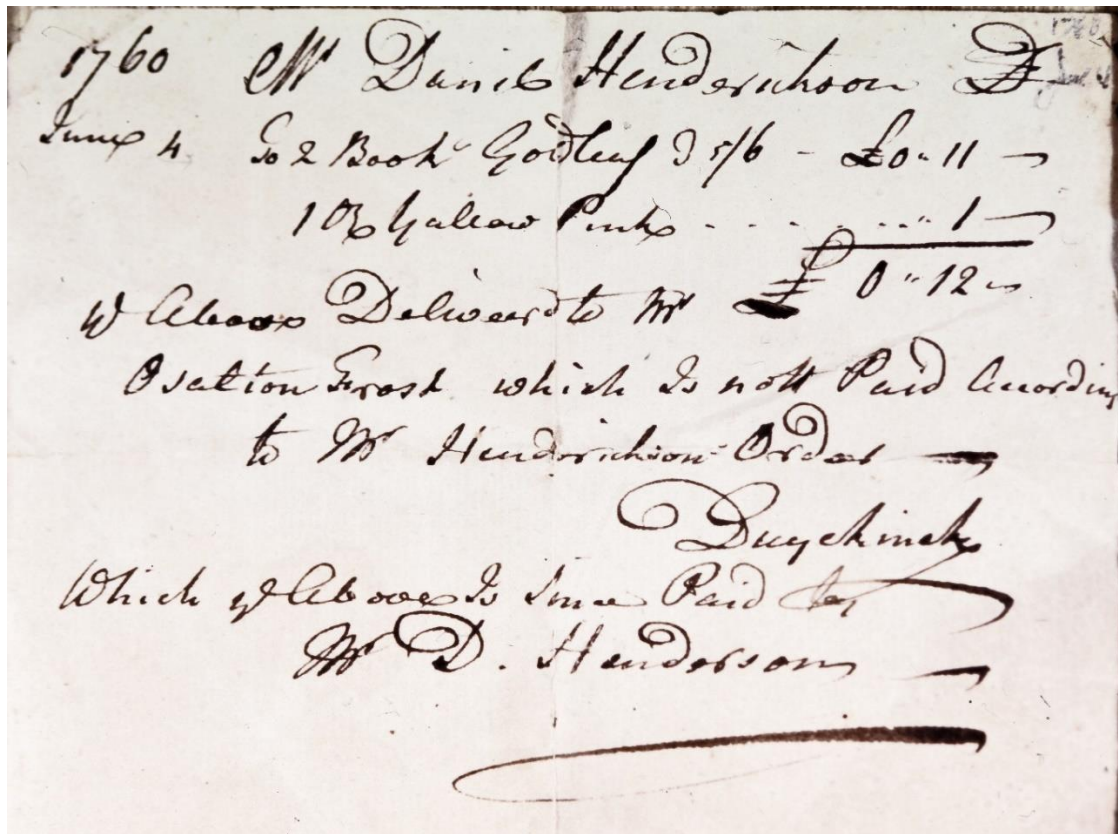 1760 Mr Daniel Hendrickson Dr
June 4 To 2 Book Goldleaf @ 5/6 - £0 " 11 -
1 Oz Yallow Pink - - - - " 1 -
£ 0 " 12 -
ye Above Deliverd to Mr
Frost which Is nott Paid According
to Mr Hendrickson Order
Duyckinck
Which ye Above Is Since Paid by
Mr D. Henderson